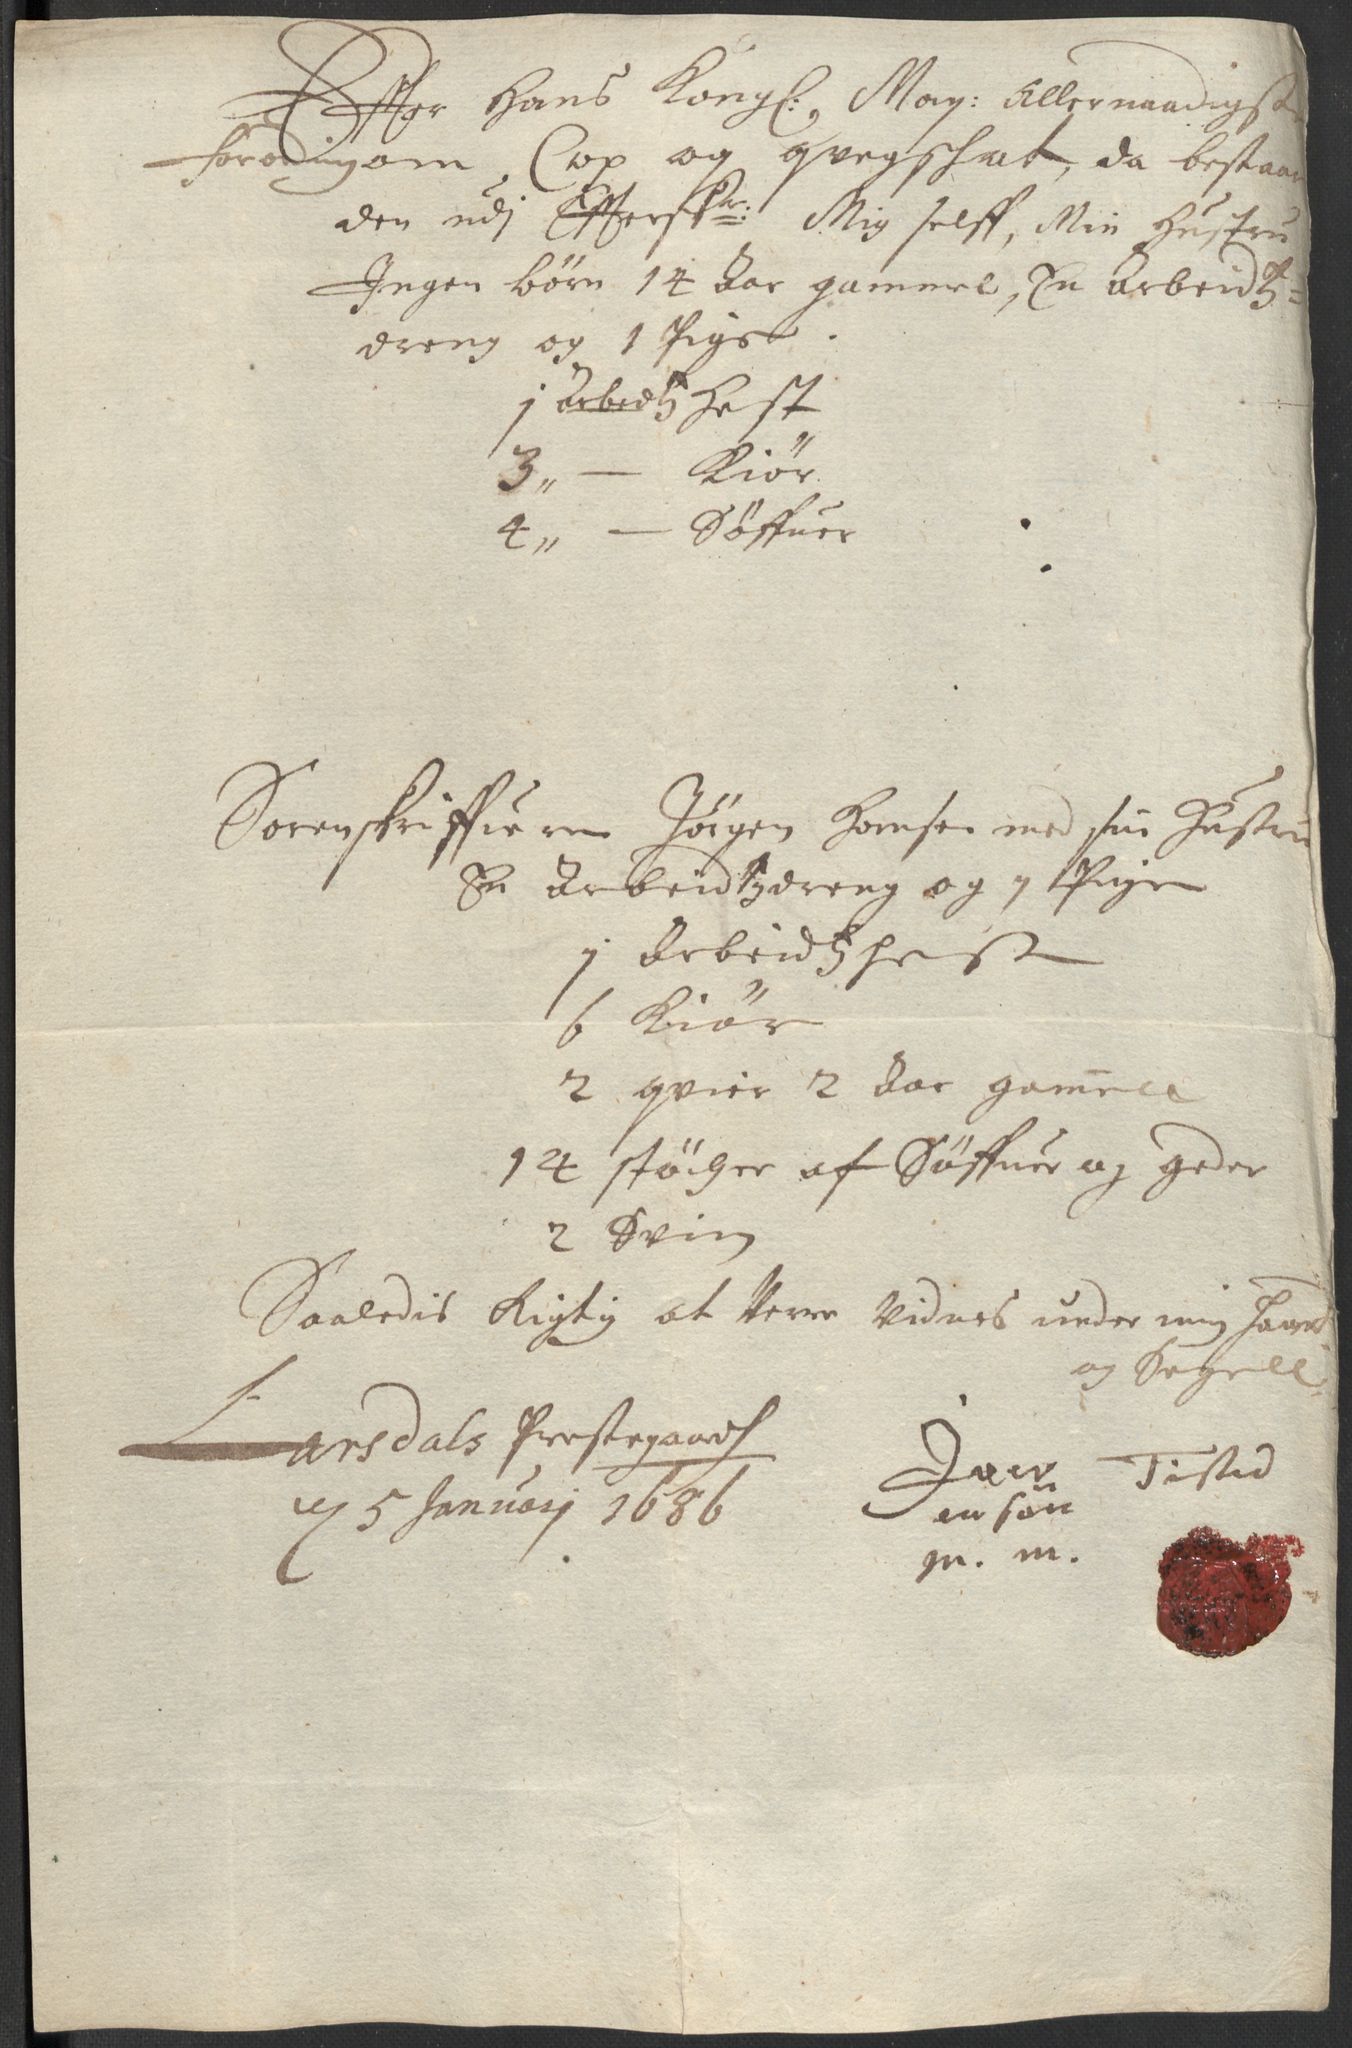 Effter Hans Kongl: May: Allernaadigste
forordning om Cop og qvegschat, da bestaar
den udj Effterskr: Mig selff, Min Hustru
Ingen børn 14 Aar gammel, En Arbeidtz=
dreng og 1 Pige.
1 Arbedtz Hest
3„ — Kiør
4„ — Søffuer
Sorenskriffueren Jørgen Hansen med sin Hustru
En Arbeidtzdreng og 1 Pige
1 Arbeidtz hest
6 Kiør
2 qvier 2 Aar gamell
14 støcher af Søffuer og geder
2 Svin
Saaledis Rigtig at Verre Vidnes under min Haand
og Segell
Larsdals Prestegaard
5 Januarj 1686
Tistad
en søn
m. m.